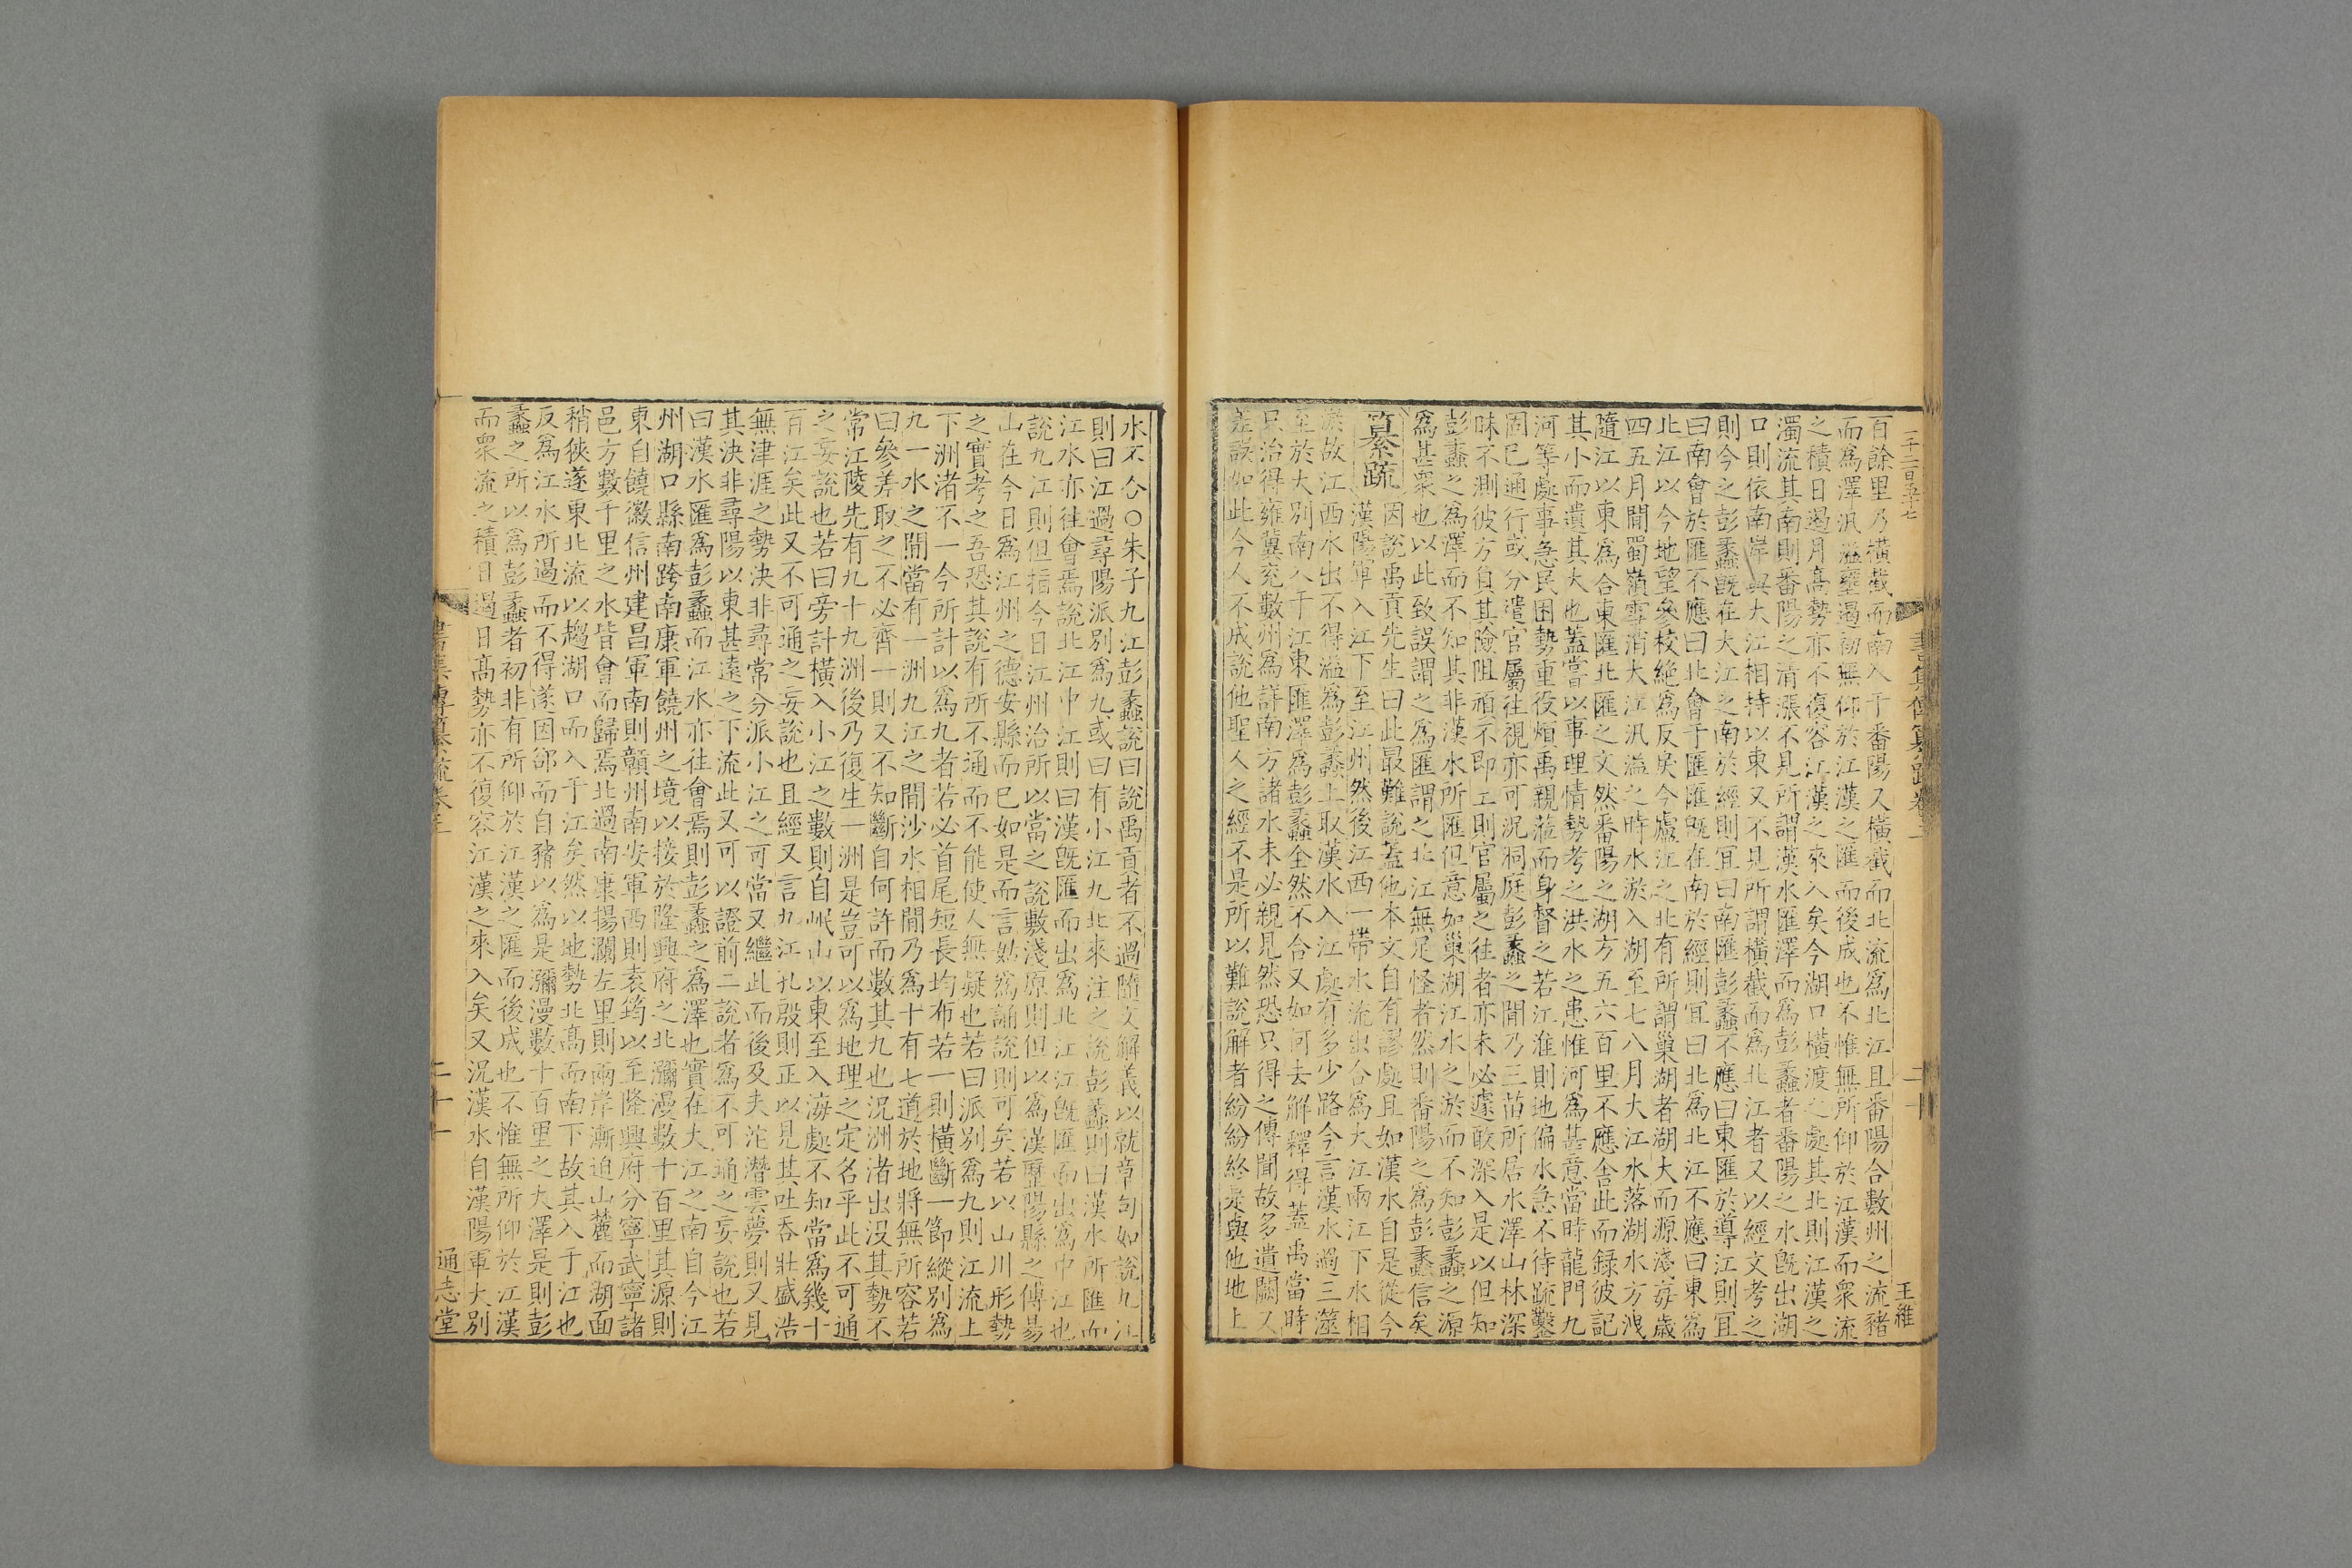 一千二百五十七
王維
書集傳纂疏卷二
二十
百餘里乃橫截而南入于番陽又橫截而北流爲北江且番陽合數州之流豬
而爲澤汎溢壅遏初無仰於江漢之匯而後成也不惟無所仰於江漢而衆流
之積日遏月高勢亦不復容江漢之來入矣今湖口橫渡之處其北則江漢之
濁流其南則番陽之清漲不見所謂漢水匯澤而爲彭蠡者番陽之水旣出湖
口則依南岸與大江相持以東又不見所謂橫截而爲北江者又以經文考之
則今之彭蠡旣在大江之南於經則宜曰南匯彭蠡不應曰東匯於導江則宜
曰南會於匯不應曰北會于匯匯旣在南於經則宜曰北爲北江不應曰東爲
北江以今地望參校絶爲反矣今廬江之北有所謂巢湖者湖大而源淺每歲
四五月間蜀嶺雪消大江汎溢之時水淤入湖至七八月大江水落湖水方洩
隨江以東爲合東匯北匯之文然番陽之湖方五六百里不應舍此而録彼記
其小而遺其大也蓋嘗以事理情勢考之洪水之患惟河爲甚意當時龍門九
河等處事急民困勢重役煩禹親蒞而身督之若江淮則地偏水急不待疏鑿
固已通行或分遣官屬往視亦可況洞庭彭蠡之間乃三苗所居水澤山林深
昧不測彼方負其險阻頑不即工則官屬之往者亦未必遽敢深入是以但知
彭蠡之爲澤而不知其非漢水所匯但意如巢湖江水之淤而不知彭蠡之源
爲甚衆也以此致誤謂之爲匯謂之北江無足怪者然則番陽之爲彭蠡信矣
纂疏 因說禹貢先生曰此最難說蓋他本文自有謬處且如漢水自是從今
漢陽軍入江下至江州然後江西一帶水流出合爲大江兩江下水相
淤故江西水出不得溢爲彭蠡上取漢水入江處有多少路今言漢水過三澨
至於大別南入于江東匯澤爲彭蠡全然不合又如何去解釋得蓋禹當時
只治得雍冀兖數州爲詳南方諸水未必親見然恐只得之傳聞故多遺闕又
差誤如此今人不成說他聖人之經不是所以難說解者紛紛終是與他地上
水不合〇朱子九江彭蠡說曰說禹貢者不過隨文解義以就章句如說九江
則曰江過尋陽派別爲九或曰有小江九北來注之說彭蠡則曰漢水所匯而
江水亦往會焉說北江中江則曰漢旣匯而出爲北江江旣匯而出爲中江也
說九江則但指今日江州治所以當之說敷淺原則但以爲漢歷陽縣之傅昜
山在今日爲江州之德安縣而已如是而言姑爲誦說則可矣若以山川形勢
之實考之吾恐其說有所不通而不能使人無疑也若曰派別爲九則江流上
下洲渚不一今所計以爲九者若必首尾短長均布若一則橫斷一節縱別爲
九一水之閒當有一洲九江之間沙水相間乃爲十有七道於地將無所容若
曰參差取之不必齊一則又不知斷自何許而數其九也況洲渚出沒其勢不
常江陵先有九十九洲後乃復生一洲是豈可以爲地理之定名乎此不可通
之妄說也若曰旁計橫入小江之數則自岷山以東至入海處不知當爲幾十
百江矣此又不可通之妄說也且經又言九江孔殷則正以見其吐吞壯盛浩
無津涯之勢決非尋常分派小江之可當又繼此而後及夫沱潛雲夢則又見
其決非尋陽以東甚遠之下流此又可以證前二說者爲不可通之妄說也若
曰漢水匯爲彭蠡而江水亦往會焉則彭蠡之爲澤也實在大江之南自今江
州湖口縣南跨南康軍饒州之境以接於隆興府之北瀰漫數十百里其源則
東自饒徽信州建昌軍南則贛州南安軍西則袁筠以至隆興府分寧武寧諸
邑方數千里之水皆會而歸焉北過南康揚瀾左里則兩岸漸迫山麓而湖面
稍俠遂東北流以趨湖口而入于江矣然以地勢北高而南下故其入于江也
反爲江水所遏而不得遂因郤而自豬以爲是瀰漫數十百里之大澤是則彭
蠡之所以爲彭蠡者初非有所仰於江漢之匯而後成也不惟無所仰於江漢
而衆流之積日遏日高勢亦不復容江漢之來入矣又況漢水自漢陽軍大別
書集傳纂疏卷二
二十一
通志堂